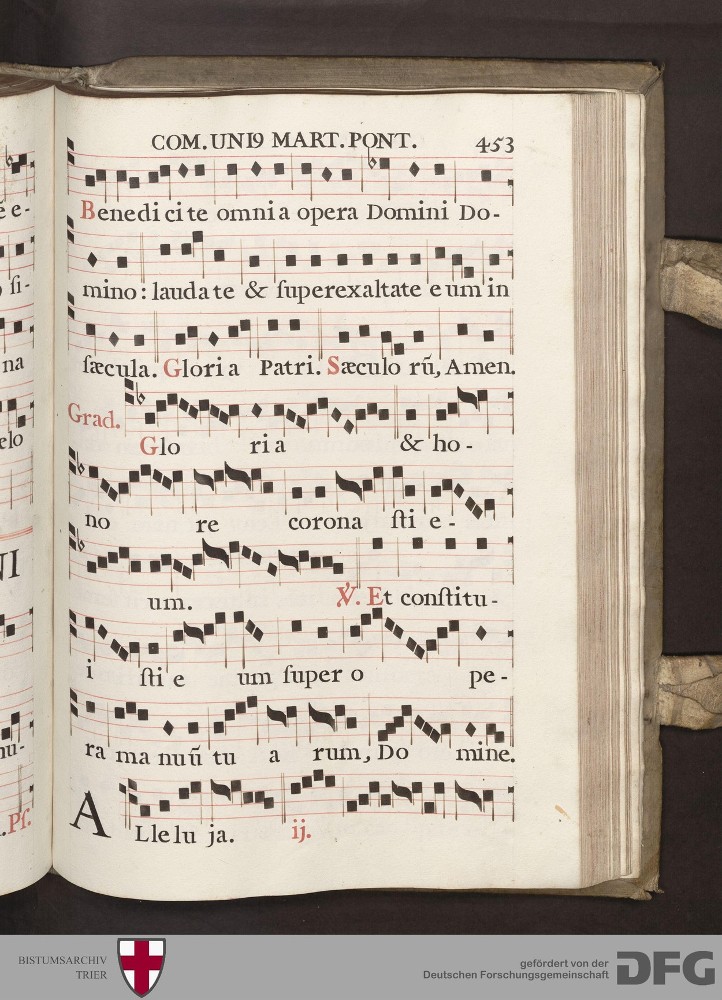 COM. UNI9 MART. PONT. 453
Benedicite omnia opera Domini Do-
mino: laudate & superexaltate eum in
sæcula. Gloria Patri. Sæculo rũ, Amen.
Grad. Glo ria & ho-
no re corona sti e-
um. ℣. Et constitu-
i sti e um super o pe-
ra ma nuũ tu a rum, Do mine.
ALlelu ja. ij.
ẽ e-
si-
na
elo
NI
nu-
Ps.
BISTUMSARCHIV
TRIER
gefördert von der
Deutschen Forschungsgemeinschaft
DFG